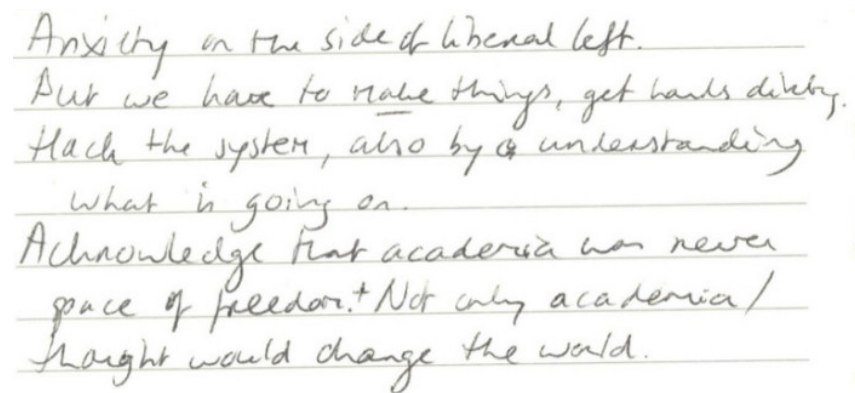 Anxiety on the side of liberal left.
But we have to make things, get hands dirty.
Hack the system, also by understanding
what is going on.
Acknowledge that academia was never
space of freedom.+ Not only academia/
thought would change the world.